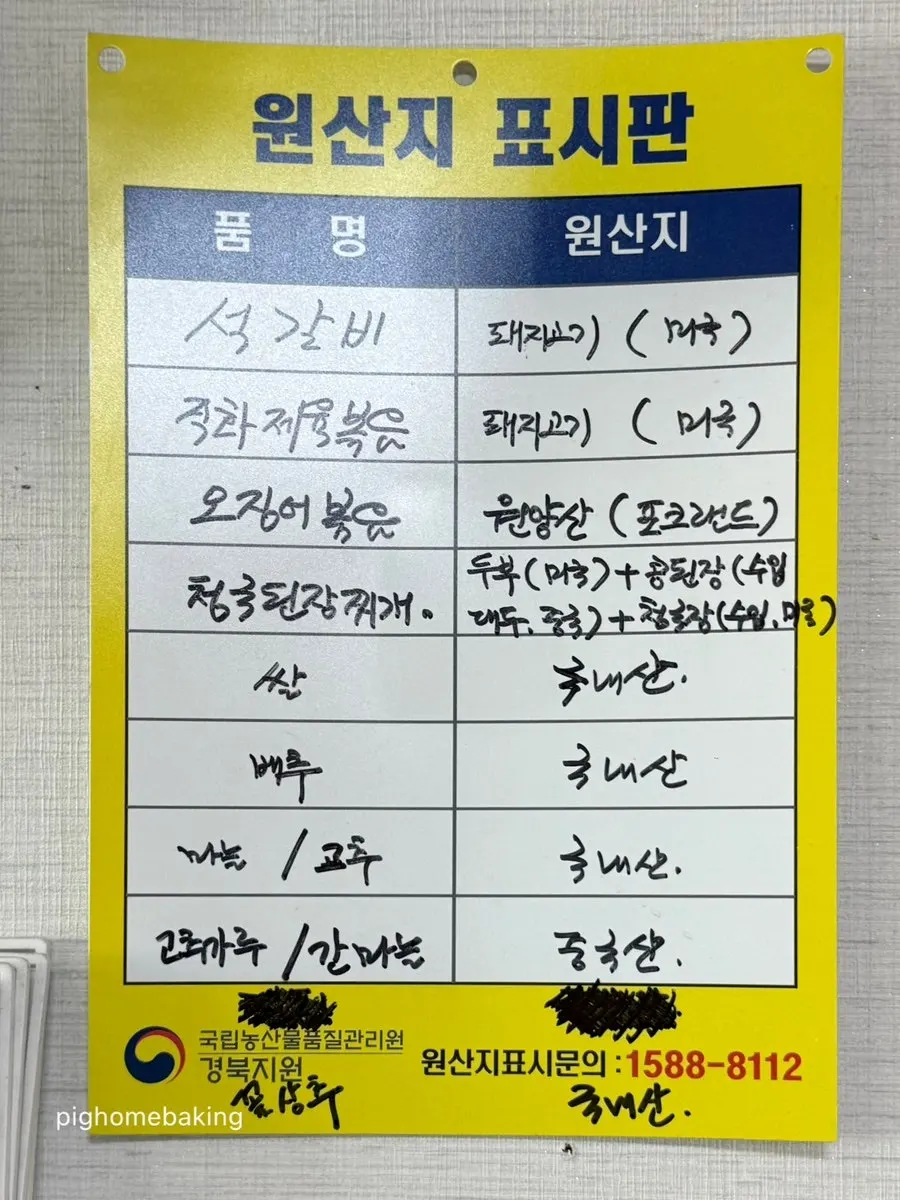 원산지 표시판
품 명 원산지
석갈비 돼지고기 (미국)
직화제육볶음 돼지고기 (미국)
오징어볶음 원양산 (포크랜드)
청국된장찌개. 두부(미국)+콩된장(수입
대두,중국)+청국장(수입,미국)
쌀 국내산.
배추 국내산
마늘 / 고추 국내산.
고추가루 / 간마늘 중국산.
국립농산물품질관리원
경북지원
원산지표시문의 : 1588-8112
상추 국내산.
pighomebaking